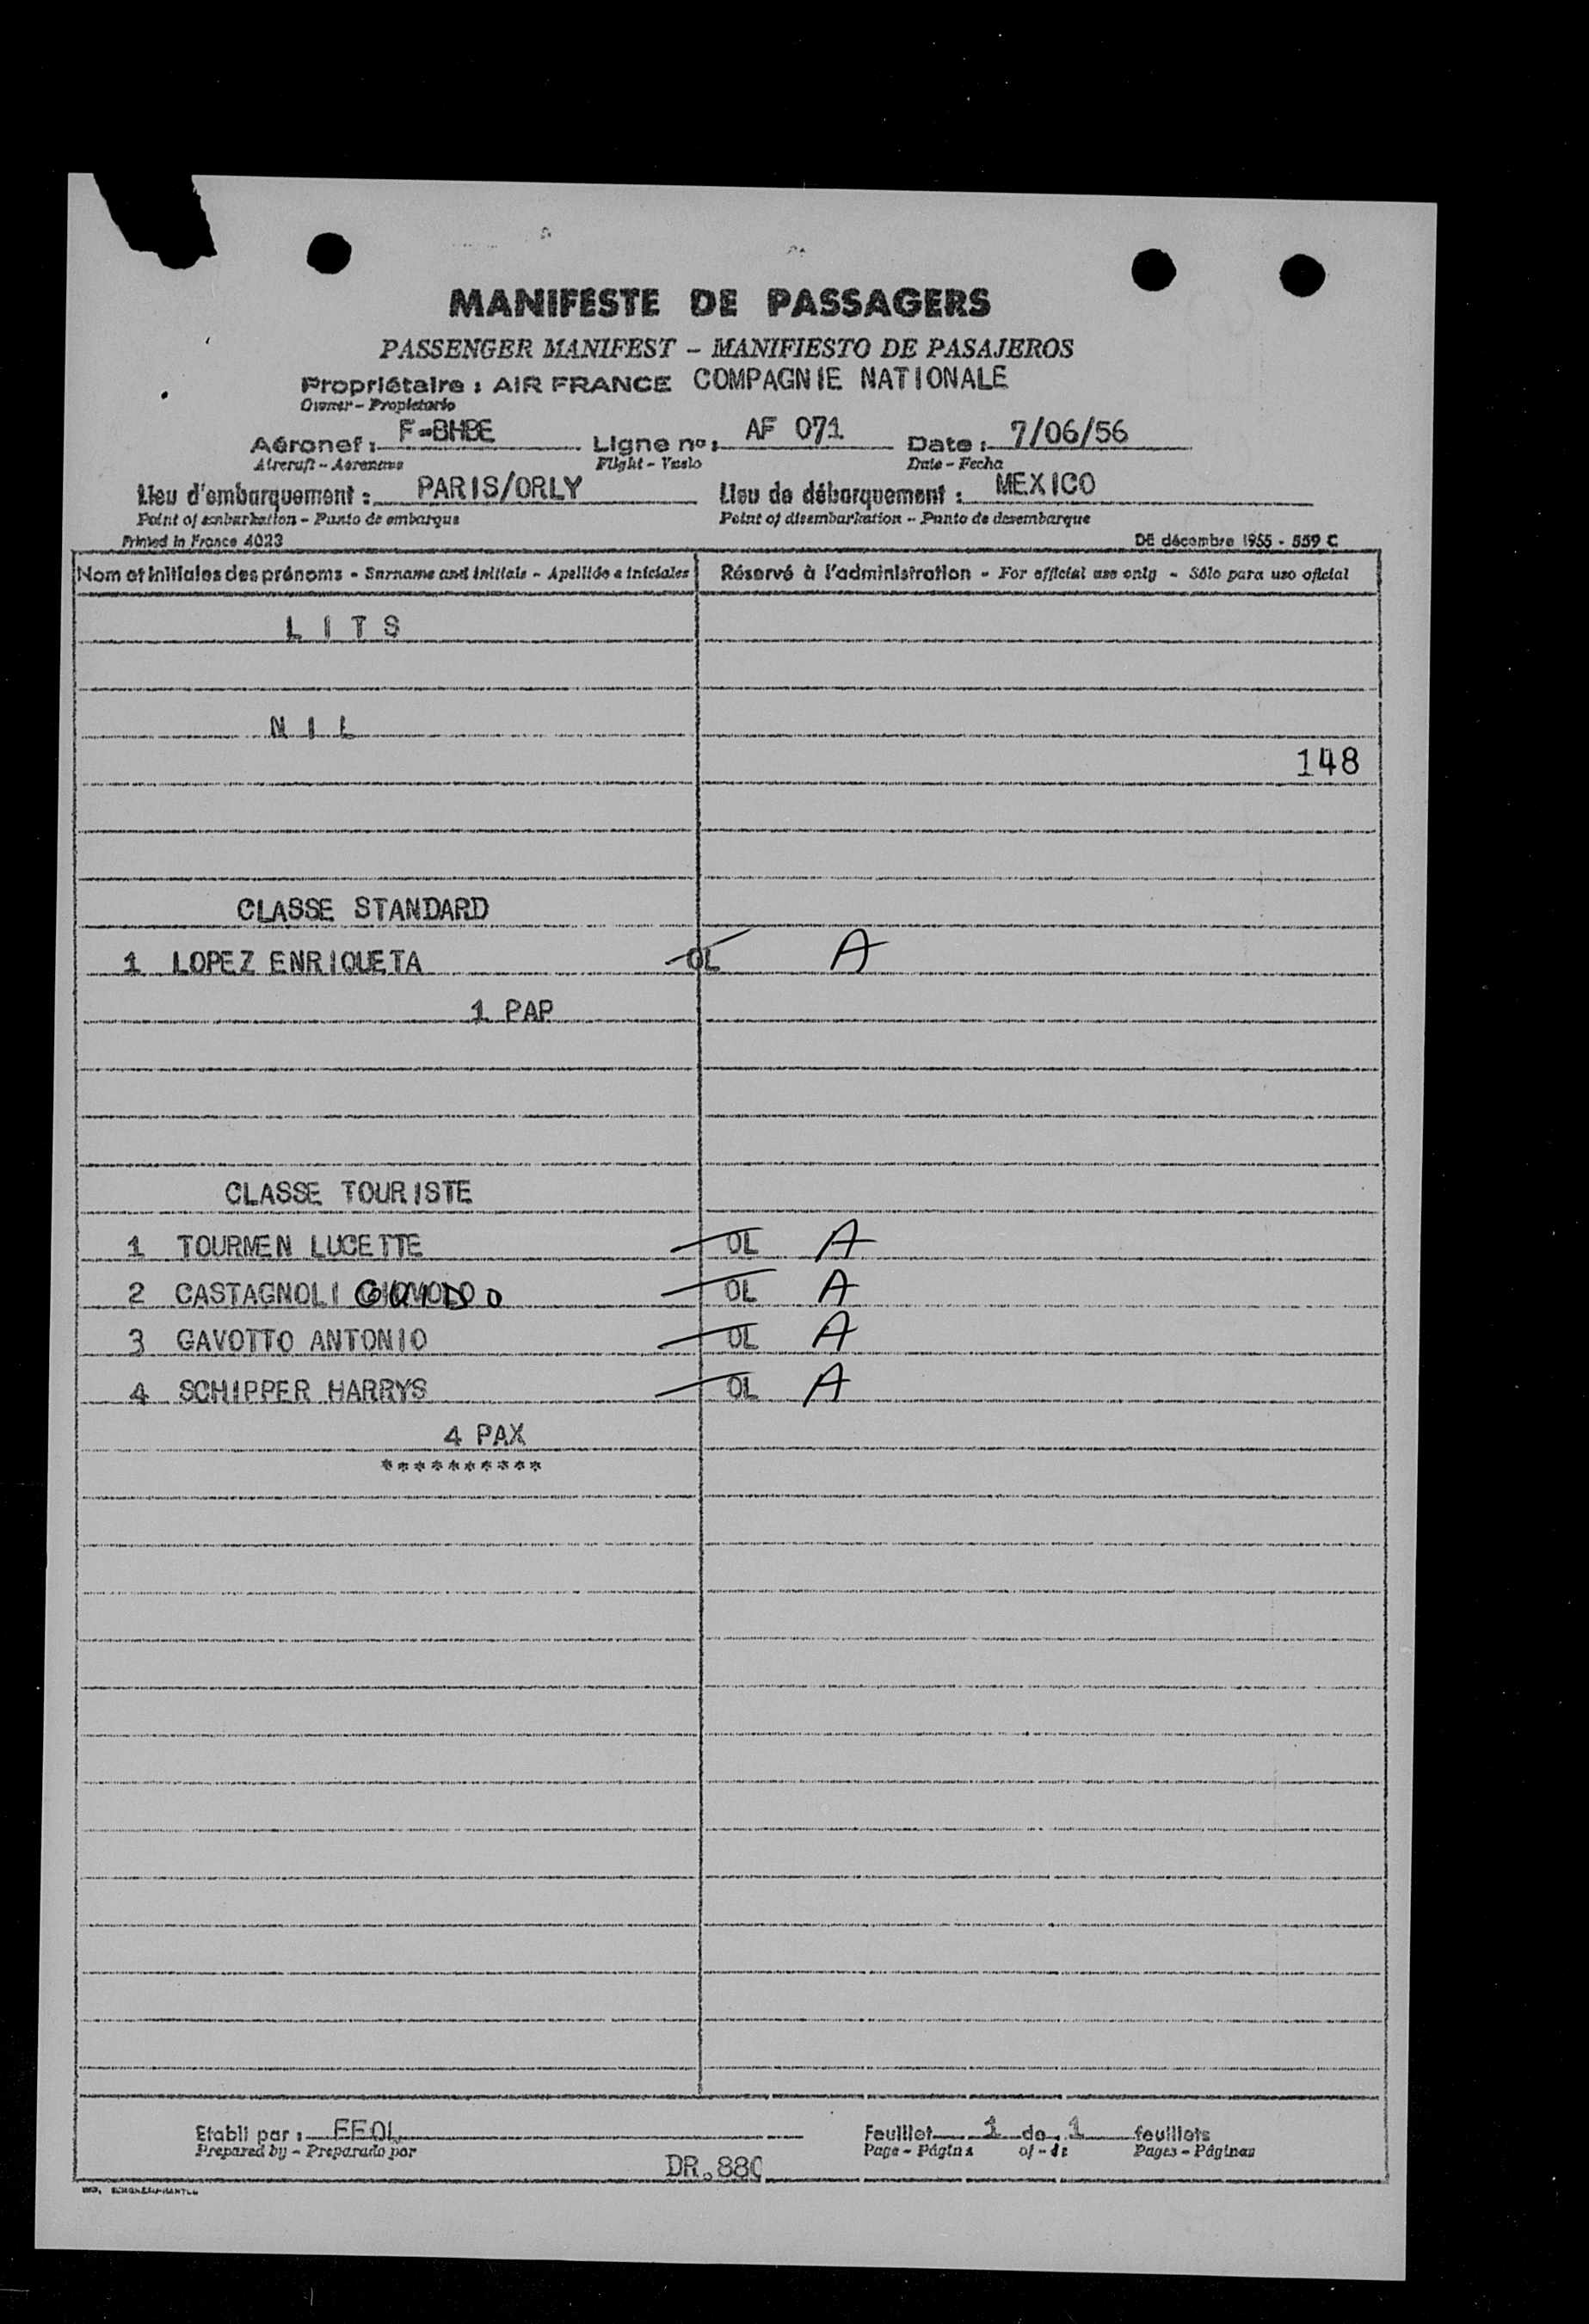 MANIFESTE DE PASSAGERS
PASSENGER MANIFEST - MANIFIESTO DE PASAJEROS
Propriétaire : AIR FRANCE COMPAGNIE NATIONALE
Owner - Propietario
Aéronef : F-BHBE Ligne no : AF 071 Date : 7/06/56
Aircraft - Aeronave Flight - Vuelo Date - Fecha
Lieu d'embarquement : PARIS/ORLY Lieu de débarquement : MEXICO
Point of embarkation - Punto de embarque Point of disembarkation - Punto de desembarque
Printed in France 4023 DE décembre 1955 - 559 C
Nom et initiales des prénoms - Surname and initials - Apellido e iniciales Réservé à l'administration - For official use only - Sólo para uso oficial
L I T S
N I L
148
CLASSE STANDARD
1 LOPEZ ENRIQUETA OL A
1 PAP
CLASSE TOURISTE
1 TOURMEN LUCETTE OL A
2 CASTAGNOLI GUIDO OL A
3 GAVOTTO ANTONIO OL A
4 SCHIPPER HARRYS OL A
4 PAX
**********
Etabli par : FFOL Feuillet 1 de 1 feuillets
Prepared by - Preparado por Page - Página of - de Pages - Páginas
DR.880